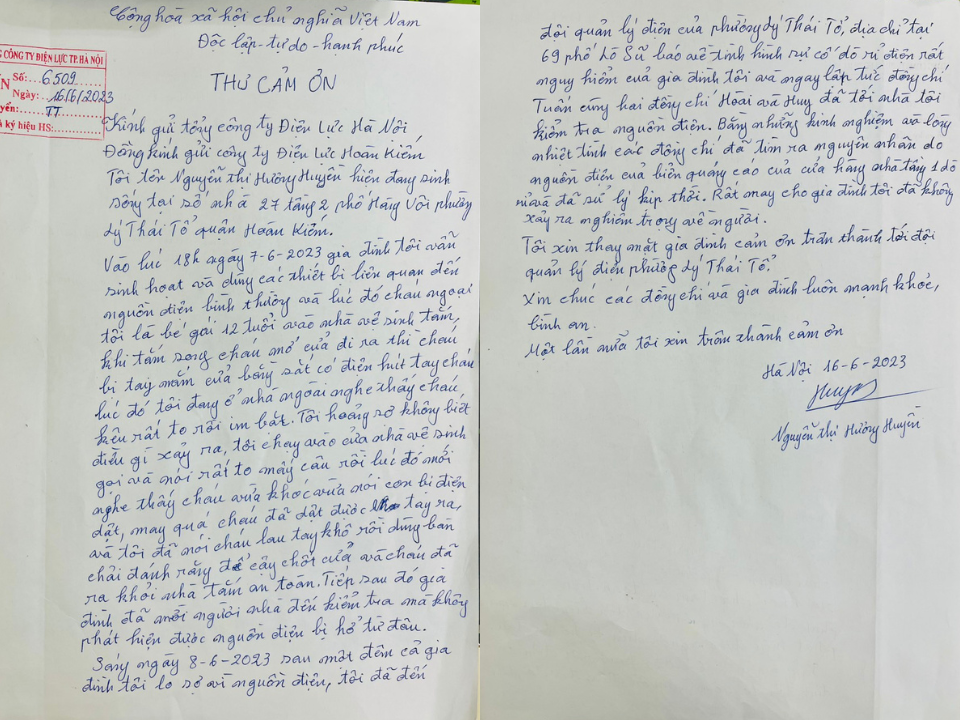 Cộng hòa xã hội chủ nghĩa Việt Nam
Độc lập - tự do - hạnh phúc
G CÔNG TY ĐIỆN LỰC TP. HÀ NỘI
Số: 6509
Ngày: 16/6/2023
TT
ký hiệu HS:
THƯ CẢM ƠN
Kính gửi tổng công ty Điện Lực Hà Nội
Đồng kính gửi công ty Điện Lực Hoàn Kiếm
Tôi tên Nguyễn thị Hương Huyền hiện đang sinh
sống tại số nhà 27 tầng 2 phố Hàng Vôi phường
Lý Thái Tổ quận Hoàn Kiếm.
Vào lúc 18h ngày 7-6-2023 gia đình tôi vẫn
sinh hoạt và dùng các thiết bị liên quan đến
nguồn điện bình thường và lúc đó cháu ngoại
tôi là bé gái 12 tuổi vào nhà vệ sinh tắm,
khi tắm song cháu mở cửa đi ra thì cháu
bị tay nắm cửa bằng sắt có điện hút tay cháu
lúc đó tôi đang ở nhà ngoài nghe thấy cháu
kêu rất to rồi im bặt. Tôi hoảng sợ không biết
điều gì xảy ra, tôi chạy vào cửa nhà vệ sinh
gọi và nói rất to mấy câu rồi lúc đó mới
nghe thấy cháu vừa khóc vừa nói con bị điện
dật, may quá cháu đã dật được tay ra,
và tôi đã nói cháu lau tay khô rồi dùng bàn
chải đánh răng để cậy chốt cửa và cháu đã
ra khỏi nhà tắm an toàn. Tiếp sau đó gia
đình đã mời người nhà đến kiểm tra mà không
phát hiện được nguồn điện bị hở từ đâu.
Sáng ngày 8-6-2023 sau một đêm cả gia
đình tôi lo sợ vì nguồn điện, tôi đã đến
đội quản lý điện của phường Lý Thái Tổ, địa chỉ tại
69 phố Lò Sũ báo về tình hình sự cố dò rỉ điện rất
nguy hiểm của gia đình tôi và ngay lập tức đồng chí
Tuấn cùng hai đồng chí Hoài và Huy đã tới nhà tôi
kiểm tra nguồn điện. Bằng những kinh nghiệm và lòng
nhiệt tình các đồng chí đã tìm ra nguyên nhân do
nguồn điện của biển quảng cáo của cửa hàng nhà tầng 1 dò
rỉ và đã sử lý kịp thời. Rất may cho gia đình tôi đã không
xảy ra nghiêm trọng về người.
Tôi xin thay mặt gia đình cảm ơn trân thành tới đội
quản lý điện phường Lý Thái Tổ.
Xin chúc các đồng chí và gia đình luôn mạnh khỏe,
bình an.
Một lần nữa tôi xin trân thành cảm ơn
Hà Nội 16-6-2023
Huyền
Nguyễn thị Hương Huyền